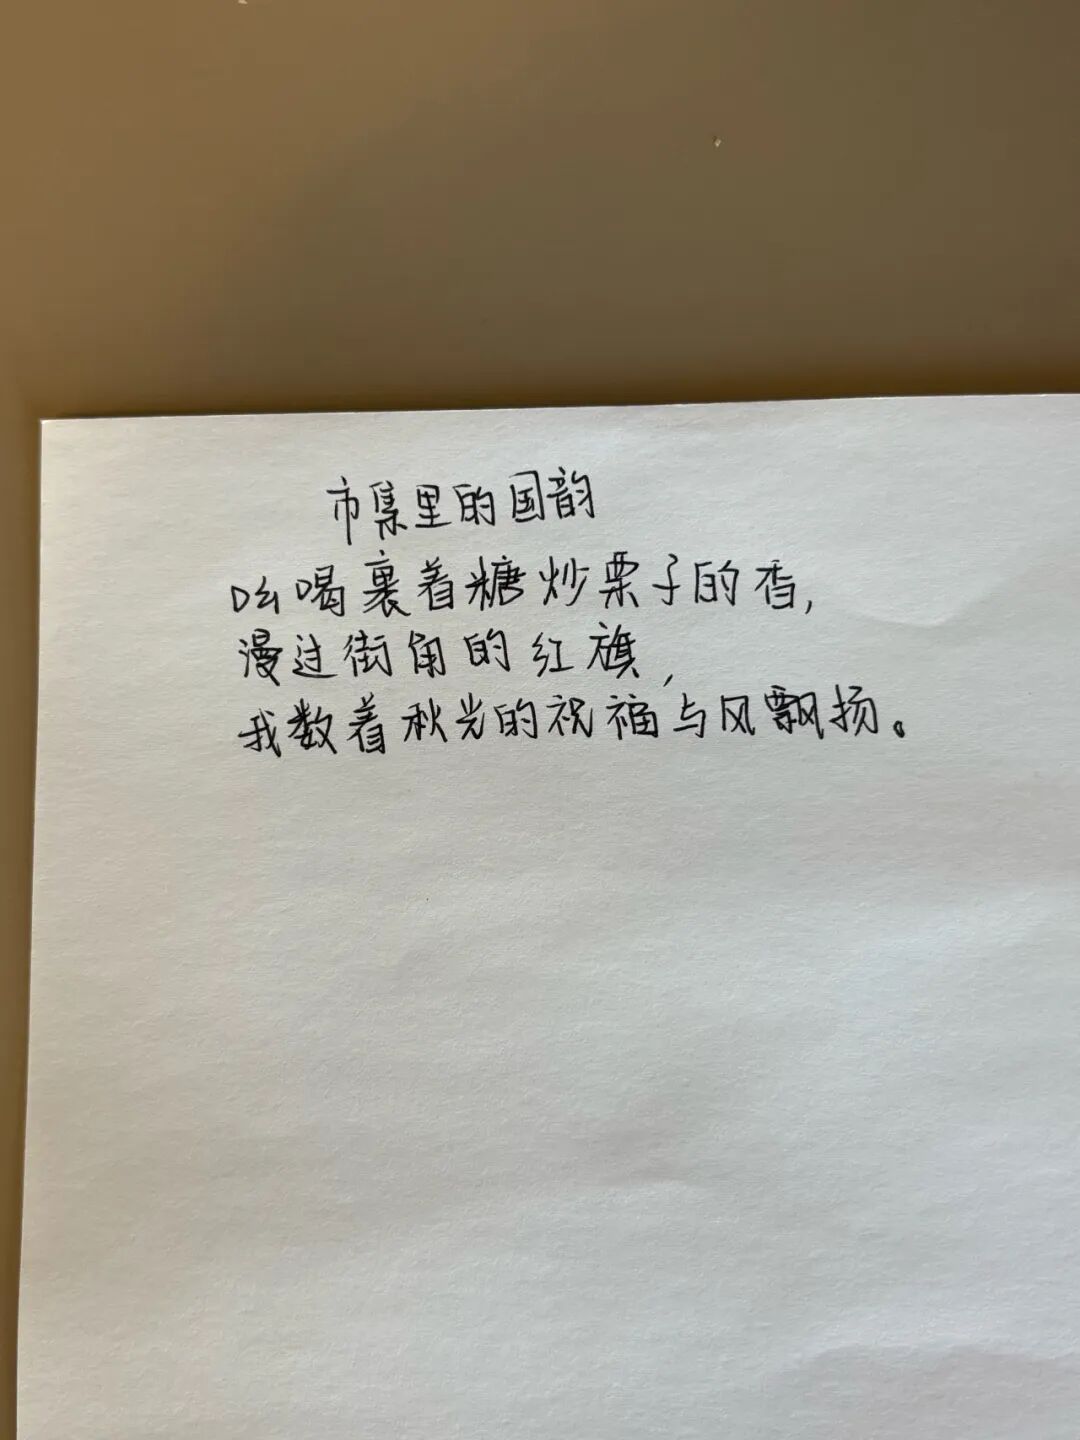 市集里的国韵
吆喝裹着糖炒栗子的香,
漫过街角的红旗,
我数着秋光的祝福与风飘扬。